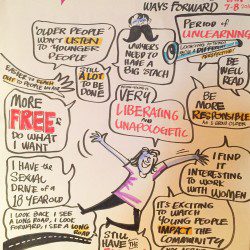 WAYS FORWARD
7-8
OLDER PEOPLE
WON'T LISTEN
TO YOUNGER
PEOPLE
LAWYERS NEED
HAVE A
BIG STACH
PERIOD of
UNLEARNING
LOOKING
FROM A DIFFERENT
PERSPECTIVE
EASIER to
OUT to PEOPLE
STILL
A LOT
TO BE
DONE
BE
WELL
READ
MORE
FREE to
DO WHAT
I WANT
VERY
LIBERATING
AND
UNAPOLOGETIC
BE
MORE
RESPONSIBLE
AS I GROW OLDER
I HAVE THE
SEXUAL
DRIVE of A
18 YEAR OLD
I FIND it
INTERESTING
to WORK
WITH WOMEN
I LOOK BACK I SEE
A LONG ROAD, I LOOK
FORWARD, I SEE A LONG
ROAD
STILL
HAVE THE
IT'S EXCITING
to WATCH
YOUNG PEOPLE
IMPACT the
COMMUNITY